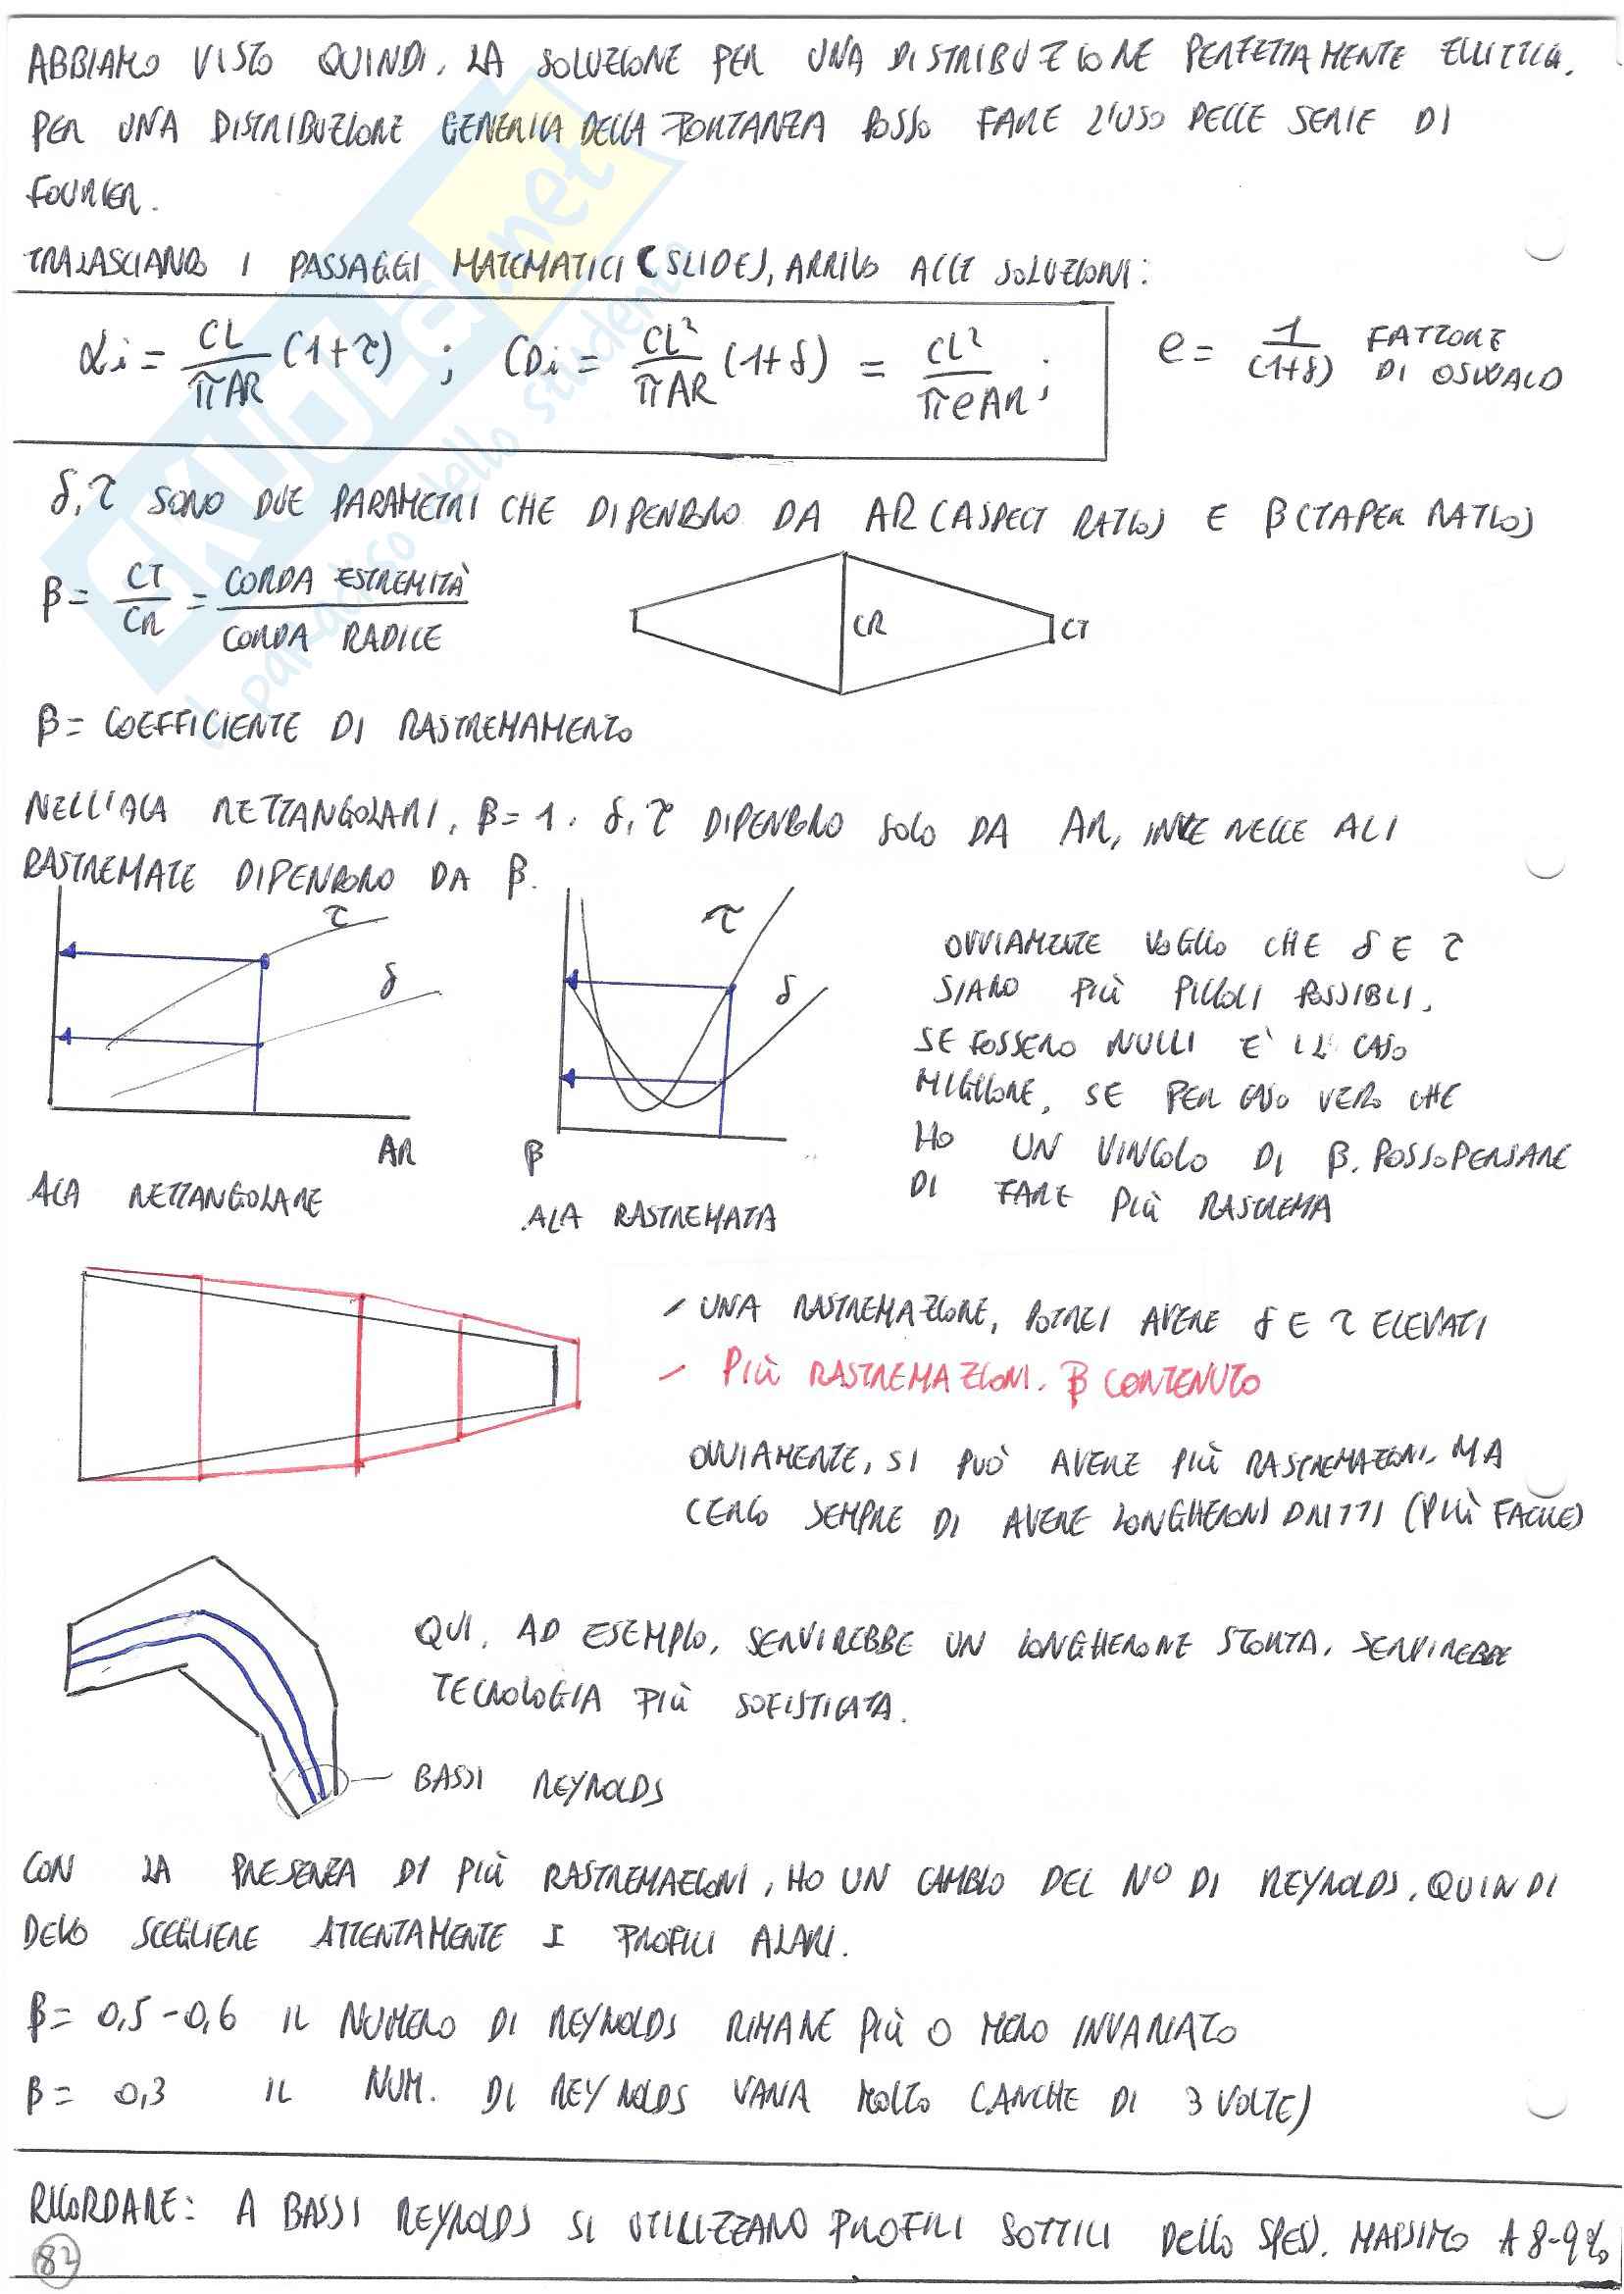 ABBIAMO VISTO QUINDI, LA SOLUZIONE PER UNA DISTRIBUZIONE PERFETTAMENTE ELLITTICA.
PER UNA DISTRIBUZIONE GENERICA DELLA PORTANZA POSSO FARE L'USO DELLE SERIE DI
FOURIER.
TRALASCIANDO I PASSAGGI MATEMATICI (SLIDE), ARRIVO ALLE SOLUZIONI:
αi = CL/πAR (1+τ) ; CDi = CL²/πAR (1+δ) = CL²/πeAR ;
e = 1/(1+δ) FATTORE DI OSWALD
δ, τ SONO DUE PARAMETRI CHE DIPENDONO DA AR (ASPECT RATIO) E β (TAPER RATIO)
β = CT/CR = CORDA ESTREMITÀ/CORDA RADICE
CR
CT
β = COEFFICIENTE DI RASTREMAMENTO
NELL'ALA RETTANGOLARI, β = 1. δ, τ DIPENDONO SOLO DA AR, INVECE NELLE ALI
RASTREMATE DIPENDONO DA β.
τ
δ
AR
ALA RETTANGOLARE
τ
δ
β
ALA RASTREMATA
OVVIAMENTE VOGLIO CHE δ E τ
SIANO PIÙ PICCOLI POSSIBLI.
SE FOSSERO NULLI E' IL CASO
MIGLIORE, SE PER CASO VERO CHE
HO UN VINCOLO DI β, POSSO PENSARE
DI FARE PIÙ RASTREMA
- UNA RASTREMAZIONE, POTREI AVERE δ E τ ELEVATI
- PIÙ RASTREMAZIONI. β CONTENUTO
OVVIAMENTE, SI PUÒ AVERE PIÙ RASTREMAZIONI, MA
CERCO SEMPRE DI AVERE LONGHERONI DRITTI (PIÙ FACILE)
QUI, AD ESEMPIO, SERVIREBBE UN LONGHERONE STORTA, SERVIREBBE
TECNOLOGIA PIÙ SOFISTICATA.
BASSI REYNOLDS
CON LA PRESENZA DI PIÙ RASTREMAZIONI, HO UN CAMBIO DEL N° DI REYNOLDS, QUINDI
DEVO SCEGLIERE ATTENTAMENTE I PROFILI ALARI.
β = 0,5-0,6 IL NUMERO DI REYNOLDS RIMANE PIÙ O MENO INVARIATO
β = 0,3 IL NUM. DI REYNOLDS VARIA MOLTO (ANCHE DI 3 VOLTE)
RICORDARE: A BASSI REYNOLDS SI UTILIZZANO PROFILI SOTTILI DELLO SPES. MASSIMO A 8-9%
82
SKUOLA.net
il paradiso dello studente